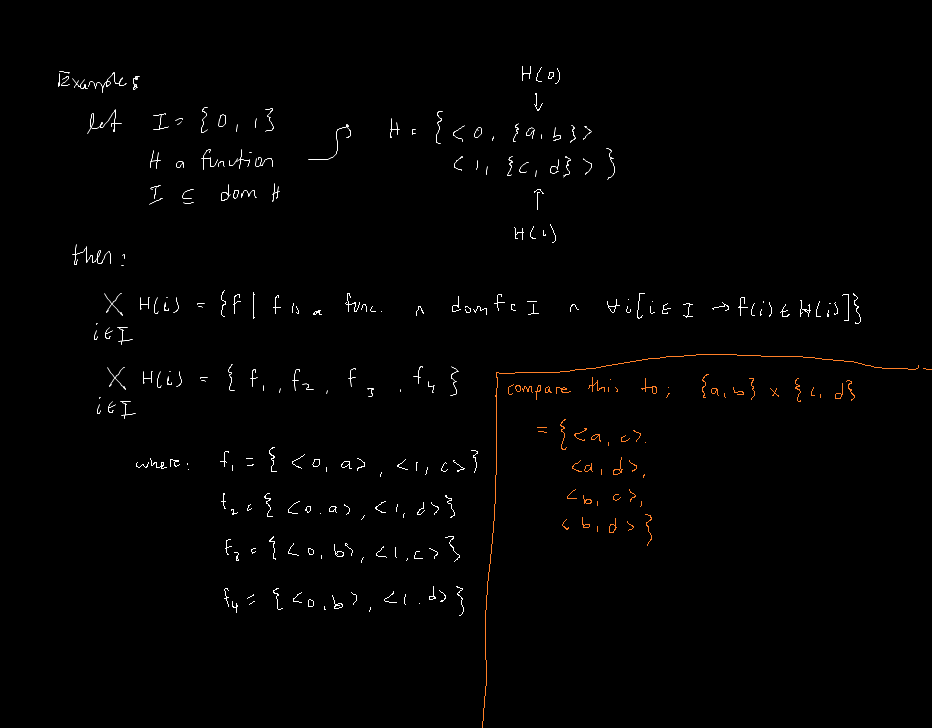 Example:
H(0)
↓
let I = {0, 1}
H a function
I ⊆ dom H
H = { <0, {a, b}>
<1, {c, d}> }
↑
H(1)
then:
X H(i) = {f | f is a func. ∧ dom f = I ∧ ∀i[i ∈ I → f(i) ∈ H(i)]}
i∈I
X H(i) = { f₁, f₂, f₃, f₄ }
i∈I
where: f₁ = { <0, a>, <1, c> }
f₂ = { <0, a>, <1, d> }
f₃ = { <0, b>, <1, c> }
f₄ = { <0, b>, <1, d> }
compare this to; {a, b} × {c, d}
= { <a, c>,
<a, d>,
<b, c>,
<b, d> }